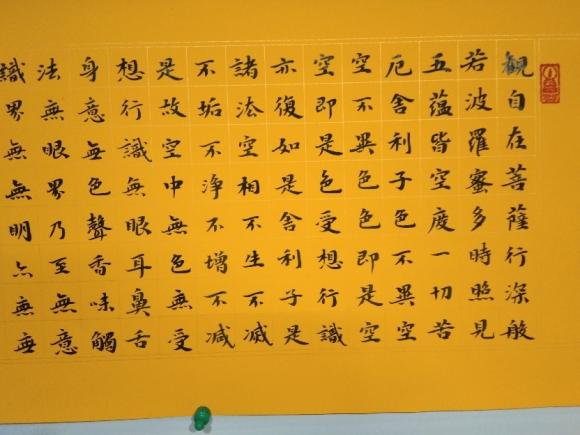 觀自在菩薩行深般
若波羅蜜多時照見
五蘊皆空度一切苦
厄舍利子色不異空
空不異色色即是空
空即是色受想行識
亦復如是舍利子是
諸法空相不生不滅
不垢不淨不增不減
是故空中無色無受
想行識無眼耳鼻舌
身意無色聲香味觸
法無眼界乃至無意
識界無無明亦無無